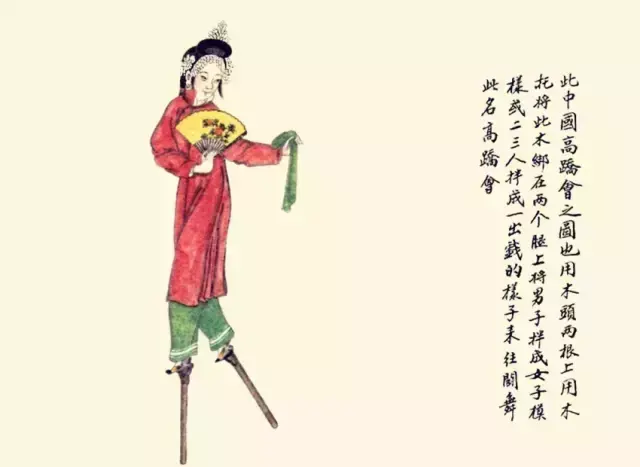 此中國高蹻會之圖也用木頭兩根上用木
托将此木綁在两个腿上将男子拌成女子模
樣或二三人拌成一出戲的樣子来往鬧舞
此名高蹻會